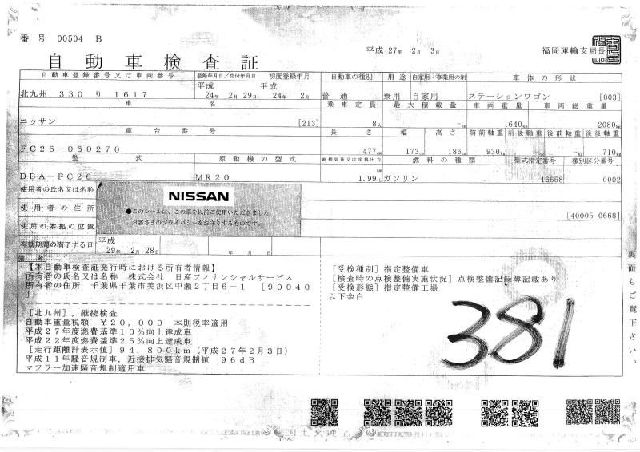 番号 00504 B
平成 27年 2月 3日
福岡運輸支局長
自動車検査証
自動車登録番号又は車両番号
登録年月日/交付年月日
初度登録年月
自動車の種別
用途
自家用・事業用の別
車体の形状
北九州 330 9 1617
平成 24年 2月 29日
平成 24年 2月
普通
乗用
自家用
ステーションワゴン [003]
車名
乗車定員
最大積載量
車両重量
車両総重量
ニッサン [213]
8人
1640kg
2080kg
車台番号
長さ
幅
高さ
前前軸重
前後軸重
後前軸重
後後軸重
FC26 050270
477cm
173cm
930kg
710kg
型式
原動機の型式
燃料の種類
型式指定番号
類別区分番号
DBA-FC26
MR20
1.99L
ガソリン
0002
使用者の氏名又は名称
使用者の住所
使用の本拠の位置
[40005 0668]
NISSAN
有効期間の満了する日
平成 29年 2月 28日
備考
【本自動車検査証発行時における所有者情報】
所有者の氏名又は名称 株式会社 日産フィナンシャルサービス
所有者の住所 千葉県千葉市美浜区中瀬2丁目6-1 [90040]
[受検種別] 指定整備車
[検査時の点検整備実施状況] 点検整備記録簿記載あり
[受検形態] 指定整備工場
以下余白
[北九州], 継続検査
自動車重量税額 ¥20,000 本則税率適用
平成27年度燃費基準10%向上達成車
平成22年度燃費基準25%向上達成車
[走行距離計表示値] 94,800km (平成27年2月3日)
平成11年騒音規制車, 近接排気騒音規制値 96dB
マフラー加速騒音規制適用車
381
裏面もご覧下さい。